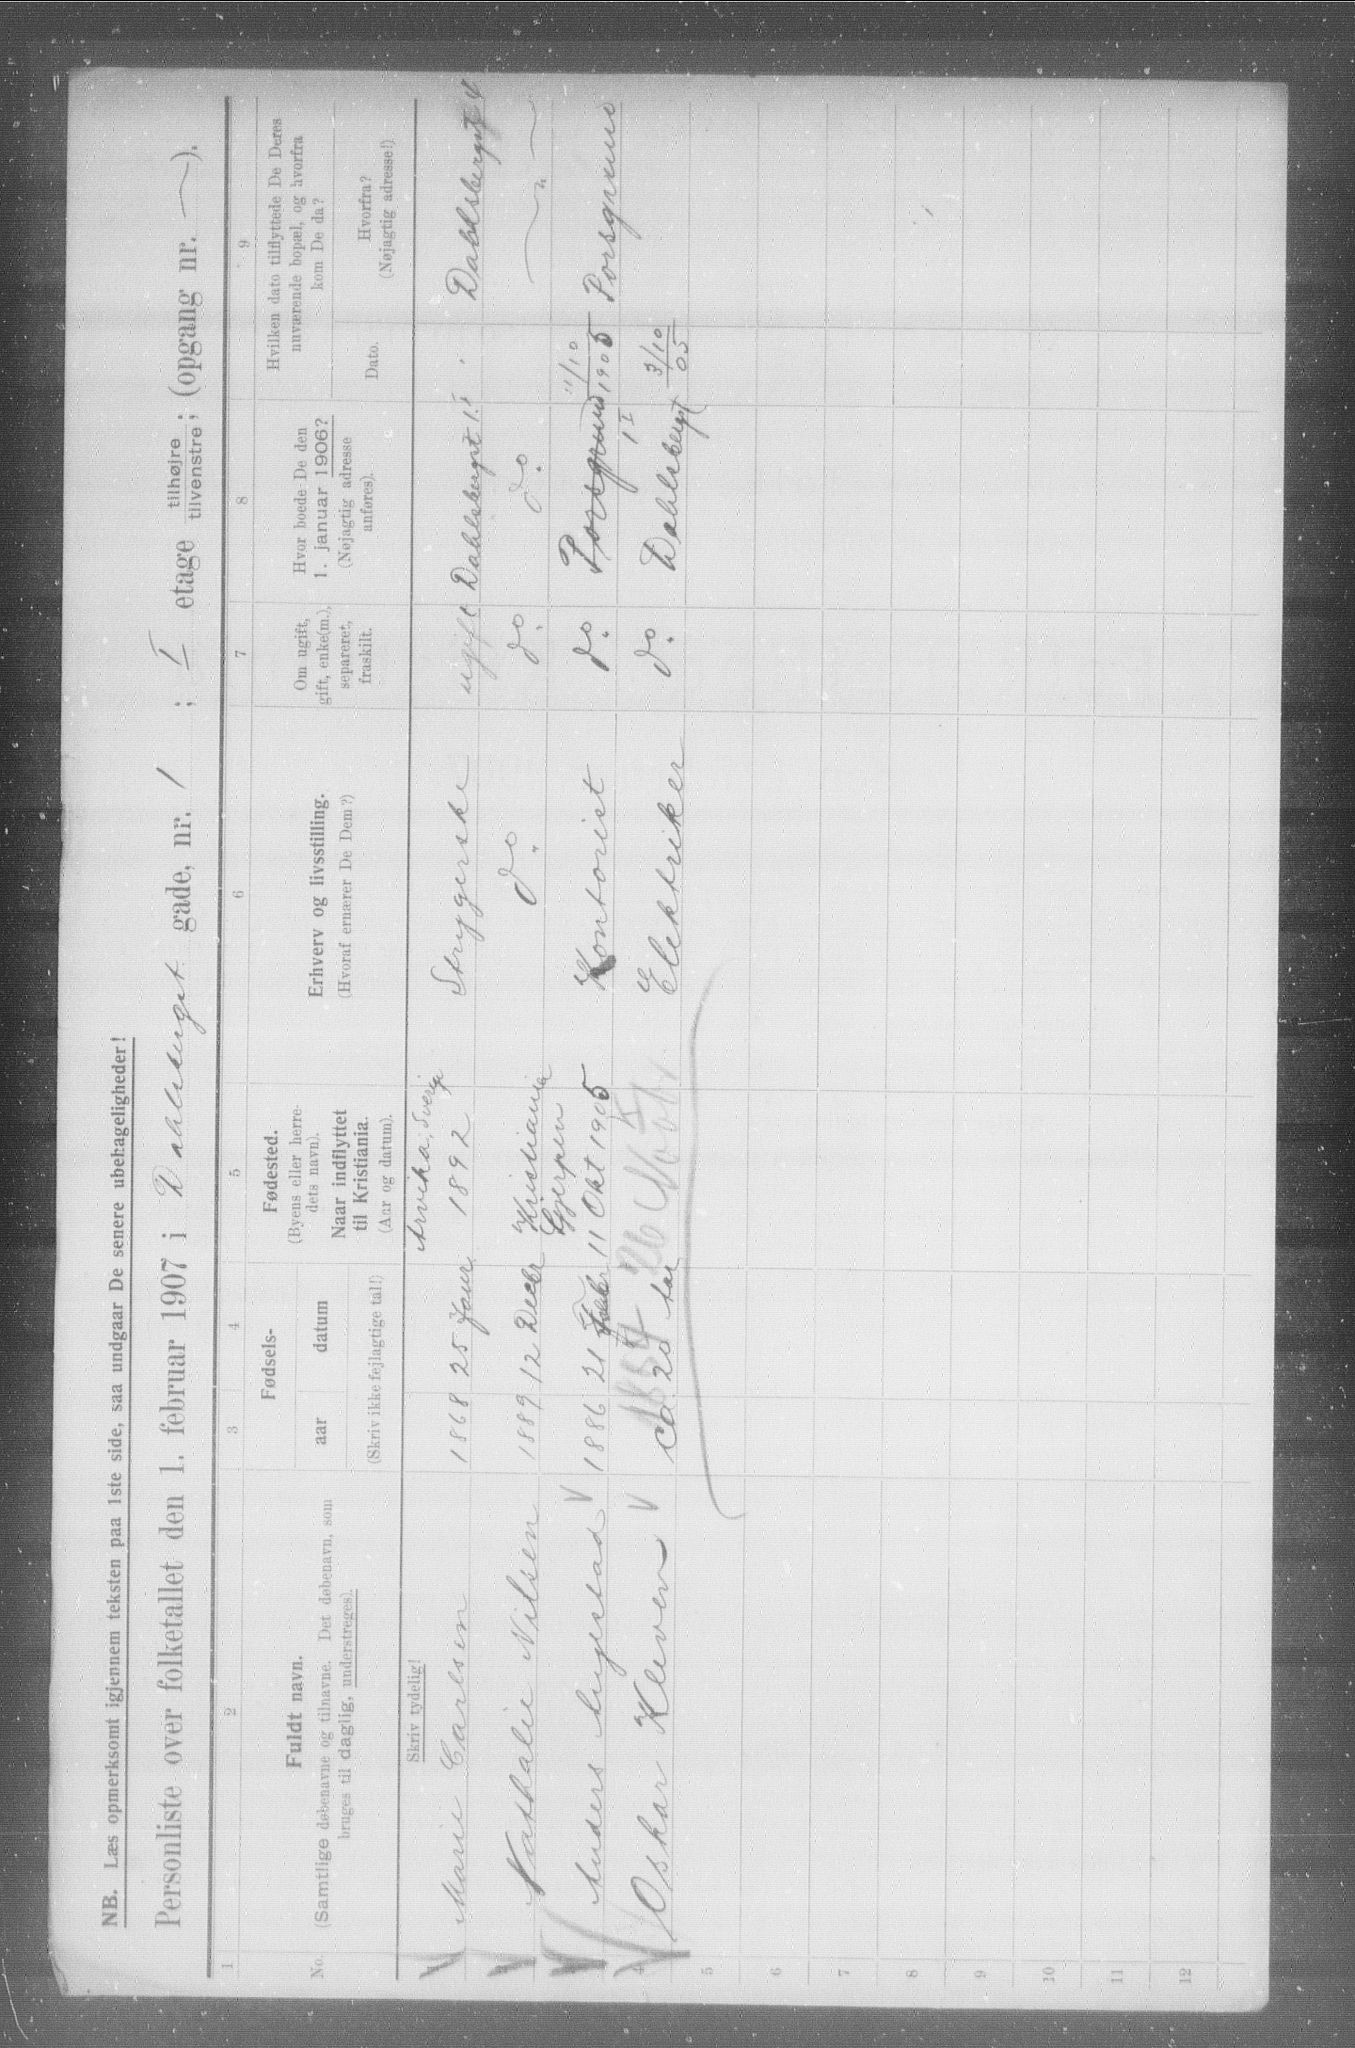 NB. Læs opmerksomt igjennem teksten paa 1ste side, saa undgaar De senere ubehageligheder!
Personliste over folketallet den 1. februar 1907 i Dahlsbergst. gade, nr. 1 ; I etage tilhøjre tilvenstre; (opgang nr. ).
1 2 3 4 5 6 7 8 9
No.
Fuldt navn.
(Samtlige døbenavne og tilnavne. Det døbenavn, som
bruges til daglig, understreges).
Fødsels-
aar datum
(Skriv ikke fejlagtige tal!)
Fødested.
(Byens eller herre-
dets navn).
Naar indflyttet
til Kristiania.
(Aar og datum).
Erhverv og livsstilling.
(Hvoraf ernærer De Dem?)
Om ugift,
gift, enke(m.),
separeret,
fraskilt.
Hvor boede De den
1. januar 1906?
(Nøjagtig adresse
anføres).
Hvilken dato tilflyttede De Deres
nuværende bopæl, og hvorfra
kom De da?
Dato.
Hvorfra?
(Nøjagtig adresse!)
Skriv tydelig!
Marie Carlsen 1868 25 Janr. Arvika, Sverige 1892 Strygerske ugift Dahlsbergst 1 I Dahlsbergst
2 Nathalie Nilsen 1889 12 Decbr Kristiania do. do. do. "
3 Anders 1886 21 Febr Gjerpen 11 Okt 1905 Kontorist do. Porsgrund 11/10 1905 Porsgrund
4 Oskar Kleven Ca 20 aar Elektriker do. Dahlsbergst 1 I 3/10 05
5
6
7
8
9
10
11
12